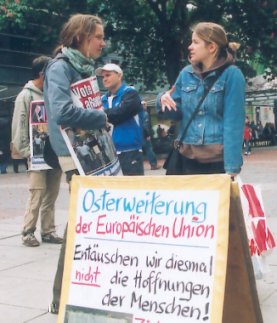 Vote
Osterweiterung
der Europäischen Union
Entäuschen wir diesmal
nicht die Hoffnungen
der Menschen!